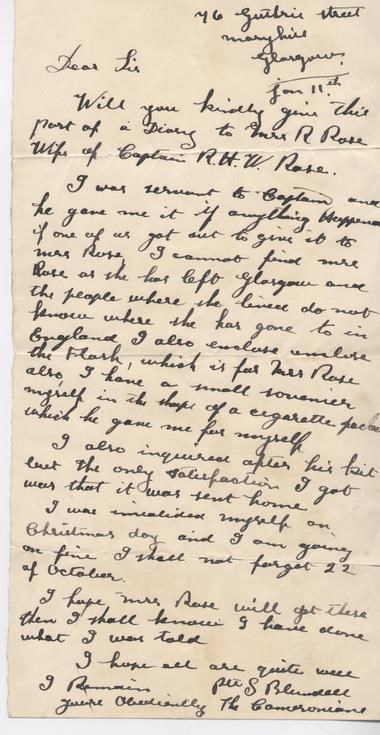 46 Guthrie street
maryhill
Glasgow.
Jan 11th
Dear Sir
Will you kindly give this
part of a Diary to Mrs R Rose
Wife of Captain R. H. W. Rose.
I was servant to Captain and
he gave me it if anything Happened
if one of us got out to give it to
mrs Rose, I cannot find mrs
Rose as she has left Glasgow and
the people where she lived do not
know where she has gone to in
England, I also enclose
the flask, which is for Mrs Rose
also, I have a small souvenir
myself in the shape of a cigarette
which he gave me for myself
I also inquired after his kit
but the only satisfaction I got
was that it was sent home
I was invalided myself on
Christmas day and I am going
on fine I shall not forget 22
of October.
I hope mrs Rose will get these
then I shall know I have done
what I was told
I hope all are quite well
I Remain Pte S Blundell
yours Obediently The Cameronians